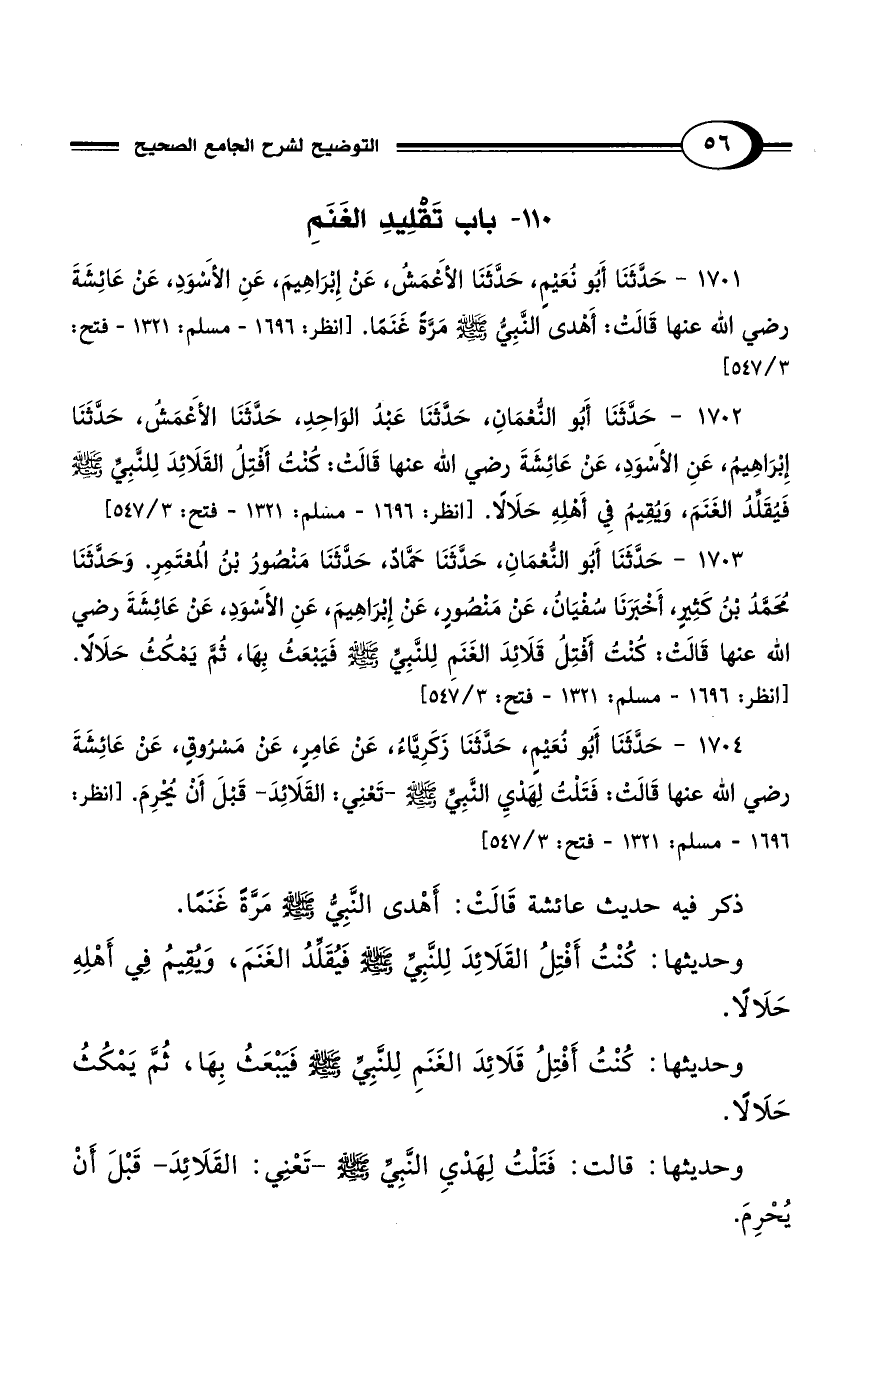 ٥٦ التوضيح لشرح الجامع الصحيح
١١٠- باب تَقْلِيدِ الغَنَمِ
١٧٠١ - حَدَّثَنَا أَبُو نُعَيْمٍ، حَدَّثَنَا الأَعْمَشُ، عَنْ إِبْرَاهِيمَ، عَنِ الأَسْوَدِ، عَنْ عَائِشَةَ
رضي الله عنها قَالَتْ: أَهْدى النَّبِيُّ ﷺ مَرَّةً غَنَمًا. [انظر: ١٦٩٦ - مسلم: ١٣٢١ - فتح:
٥٤٧/٣]
١٧٠٢ - حَدَّثَنَا أَبُو النُّعْمَانِ، حَدَّثَنَا عَبْدُ الوَاحِدِ، حَدَّثَنَا الأَعْمَشُ، حَدَّثَنَا
إِبْرَاهِيمُ، عَنِ الأَسْوَدِ، عَنْ عَائِشَةَ رضي الله عنها قَالَتْ: كُنْتُ أَفْتِلُ القَلَائِدَ لِلنَّبِيِّ ﷺ
فَيُقَلِّدُ الغَنَمَ، وَيُقِيمُ فِي أَهْلِهِ حَلَالًا. [انظر: ١٦٩٦ - مسلم: ١٣٢١ - فتح: ٥٤٧/٣]
١٧٠٣ - حَدَّثَنَا أَبُو النُّعْمَانِ، حَدَّثَنَا حَمَّادٌ، حَدَّثَنَا مَنْصُورُ بْنُ المُعْتَمِرِ. وَحَدَّثَنَا
مُحَمَّدُ بْنُ كَثِيرٍ، أَخْبَرَنَا سُفْيَانُ، عَنْ مَنْصُورٍ، عَنْ إِبْرَاهِيمَ، عَنِ الأَسْوَدِ، عَنْ عَائِشَةَ رضي
الله عنها قَالَتْ: كُنْتُ أَفْتِلُ قَلَائِدَ الغَنَمِ لِلنَّبِيِّ ﷺ فَيَبْعَثُ بِهَا، ثُمَّ يَمْكُثُ حَلَالًا.
[انظر: ١٦٩٦ - مسلم: ١٣٢١ - فتح: ٥٤٧/٣]
١٧٠٤ - حَدَّثَنَا أَبُو نُعَيْمٍ، حَدَّثَنَا زَكَرِيَّاءُ، عَنْ عَامِرٍ، عَنْ مَسْرُوقٍ، عَنْ عَائِشَةَ
رضي الله عنها قَالَتْ: فَتَلْتُ لِهَدْيِ النَّبِيِّ ﷺ -تَعْنِي: القَلَائِدَ- قَبْلَ أَنْ يُحْرِمَ. [انظر:
١٦٩٦ - مسلم: ١٣٢١ - فتح: ٥٤٧/٣]
ذكر فيه حديث عائشة قَالَتْ: أَهْدى النَّبِيُّ ﷺ مَرَّةً غَنَمًا.
وحديثها: كُنْتُ أَفْتِلُ القَلَائِدَ لِلنَّبِيِّ ﷺ فَيُقَلِّدُ الغَنَمَ، وَيُقِيمُ فِي أَهْلِهِ
حَلَالًا.
وحديثها: كُنْتُ أَفْتِلُ قَلَائِدَ الغَنَمِ لِلنَّبِيِّ ﷺ فَيَبْعَثُ بِهَا، ثُمَّ يَمْكُثُ
حَلَالًا.
وحديثها: قالت: فَتَلْتُ لِهَدْيِ النَّبِيِّ ﷺ -تَعْنِي: القَلَائِدَ- قَبْلَ أَنْ
يُحْرِمَ.